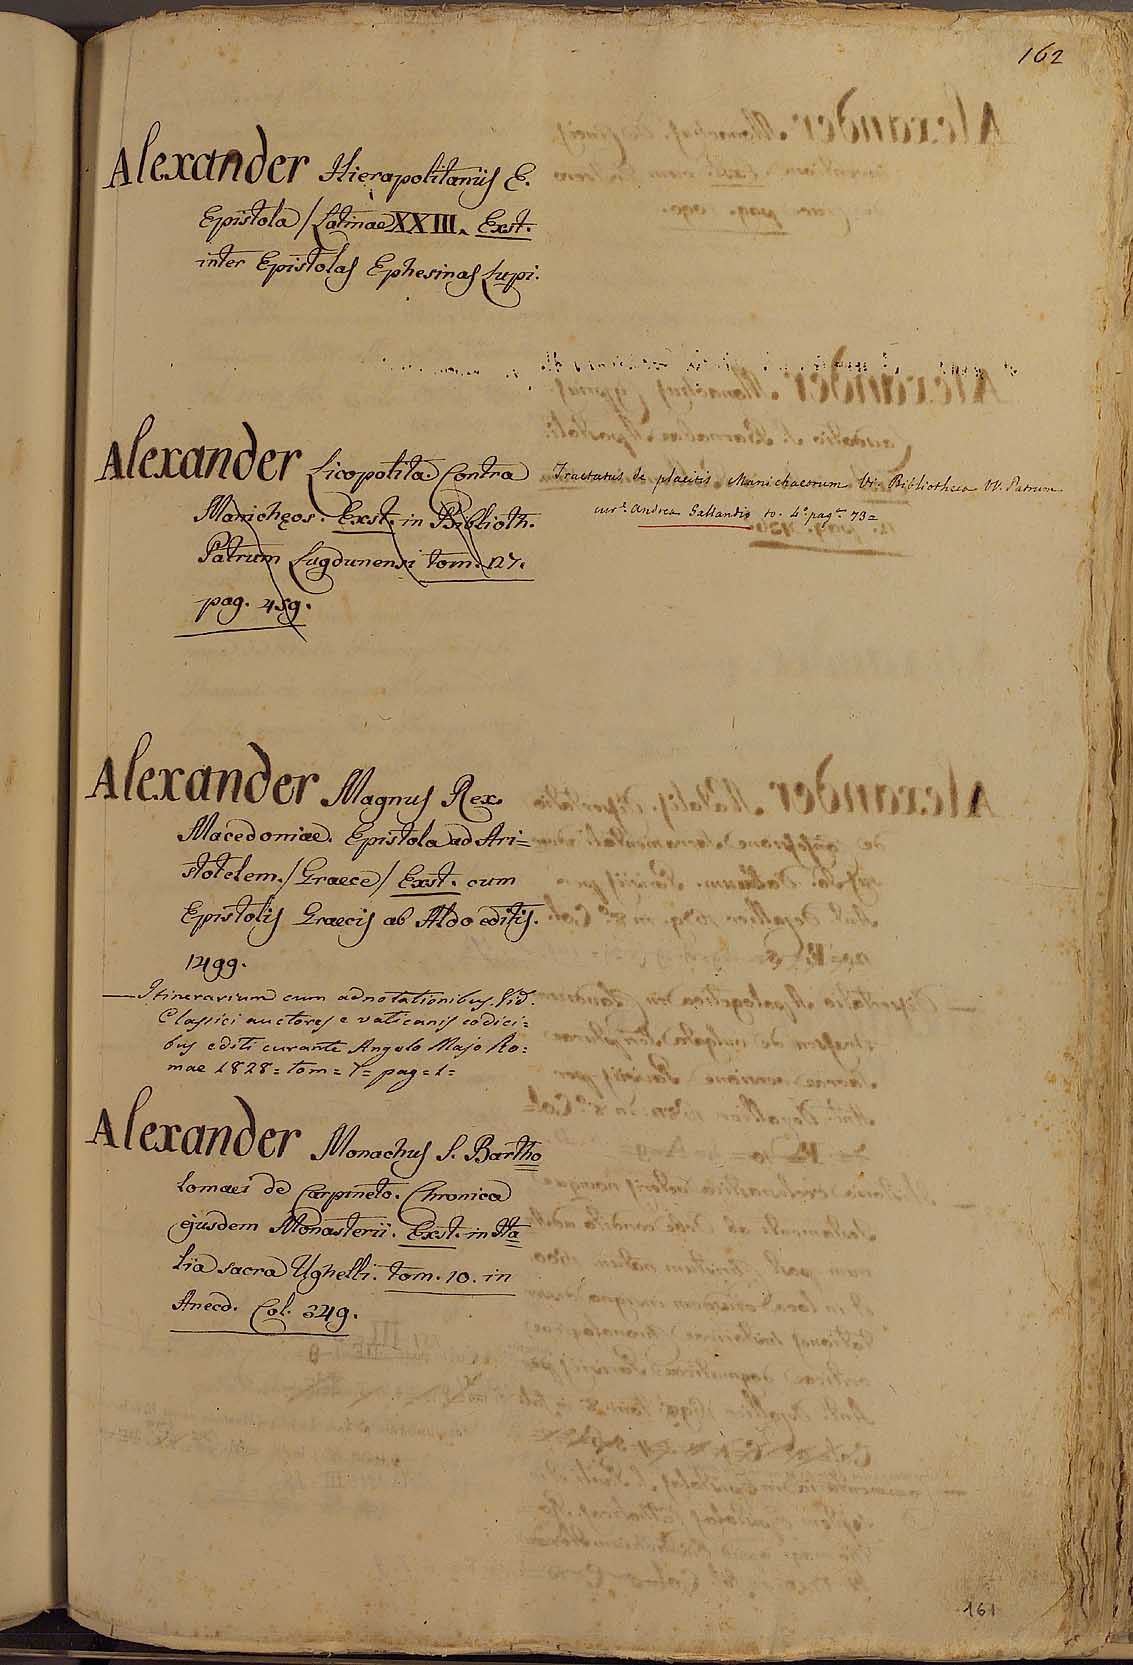 162
Alexander Hierapolitanus E.
Epistola / Latinae XXIII. Exst.
inter Epistolas Ephesinas Lupi.
Alexander Licopolita Contra
Manichęos. Exst. in Biblioth.
Patrum Lugdunensi tom. 27.
pag. 459.
Tractatus de placitis Manichaeorum Vi. Bibliotheca VV. Patrum
cur.e Andrea Gallandio to. 4.o pag.e 73=
Alexander Magnus Rex
Macedoniae. Epistola ad Ari=
stotelem. / Graece / Exst. cum
Epistolis Graecis ab Aldo editis.
1499.
— Itinerarium cum adnotationibus. Vid.
Classici auctores e vaticanis codici=
bus editi curante Angelo Majo Ro=
mae 1828= tom= 7= pag= 1=
Alexander Monachus S. Bartho
lomaei de Carpineto. Chronica
ejusdem Monasterii. Exst. in Ita
lia sacra Ughelli. tom. 10. in
Anecd. Col. 349.
161